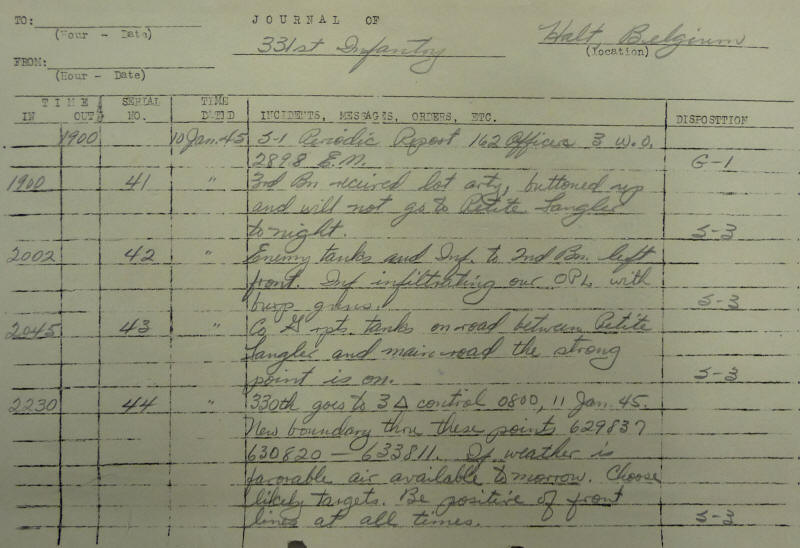 TO: JOURNAL OF
(Hour - Date) 331st Infantry Halt, Belgium
(location)
FROM:
(Hour - Date)
TIME SERIAL TIME
IN OUT NO. DATED INCIDENTS, MESSAGES, ORDERS, ETC. DISPOSITION
1900 10 Jan. 45 S-1 Periodic Report 162 Officers 3 W.O.
2898 E.M. G-1
1900 41 " 3rd Bn received lot arty, buttoned up
and will not go to Petite Langlier
tonight. S-3
2002 42 " Enemy tanks and Inf. to 2nd Bn. left
front. Inf infiltrating our OPL with
burp guns. S-3
2045 43 " Co G rpts. tanks on road between Petite
Langlier and main road the strong
point is on. S-3
2230 44 " 330th goes to 3 Δ control 0800, 11 Jan 45.
New boundary thru these points 629837
630820 — 633811. If weather is
favorable air available tomorrow. Choose
likely targets. Be positive of front
lines at all times. S-3